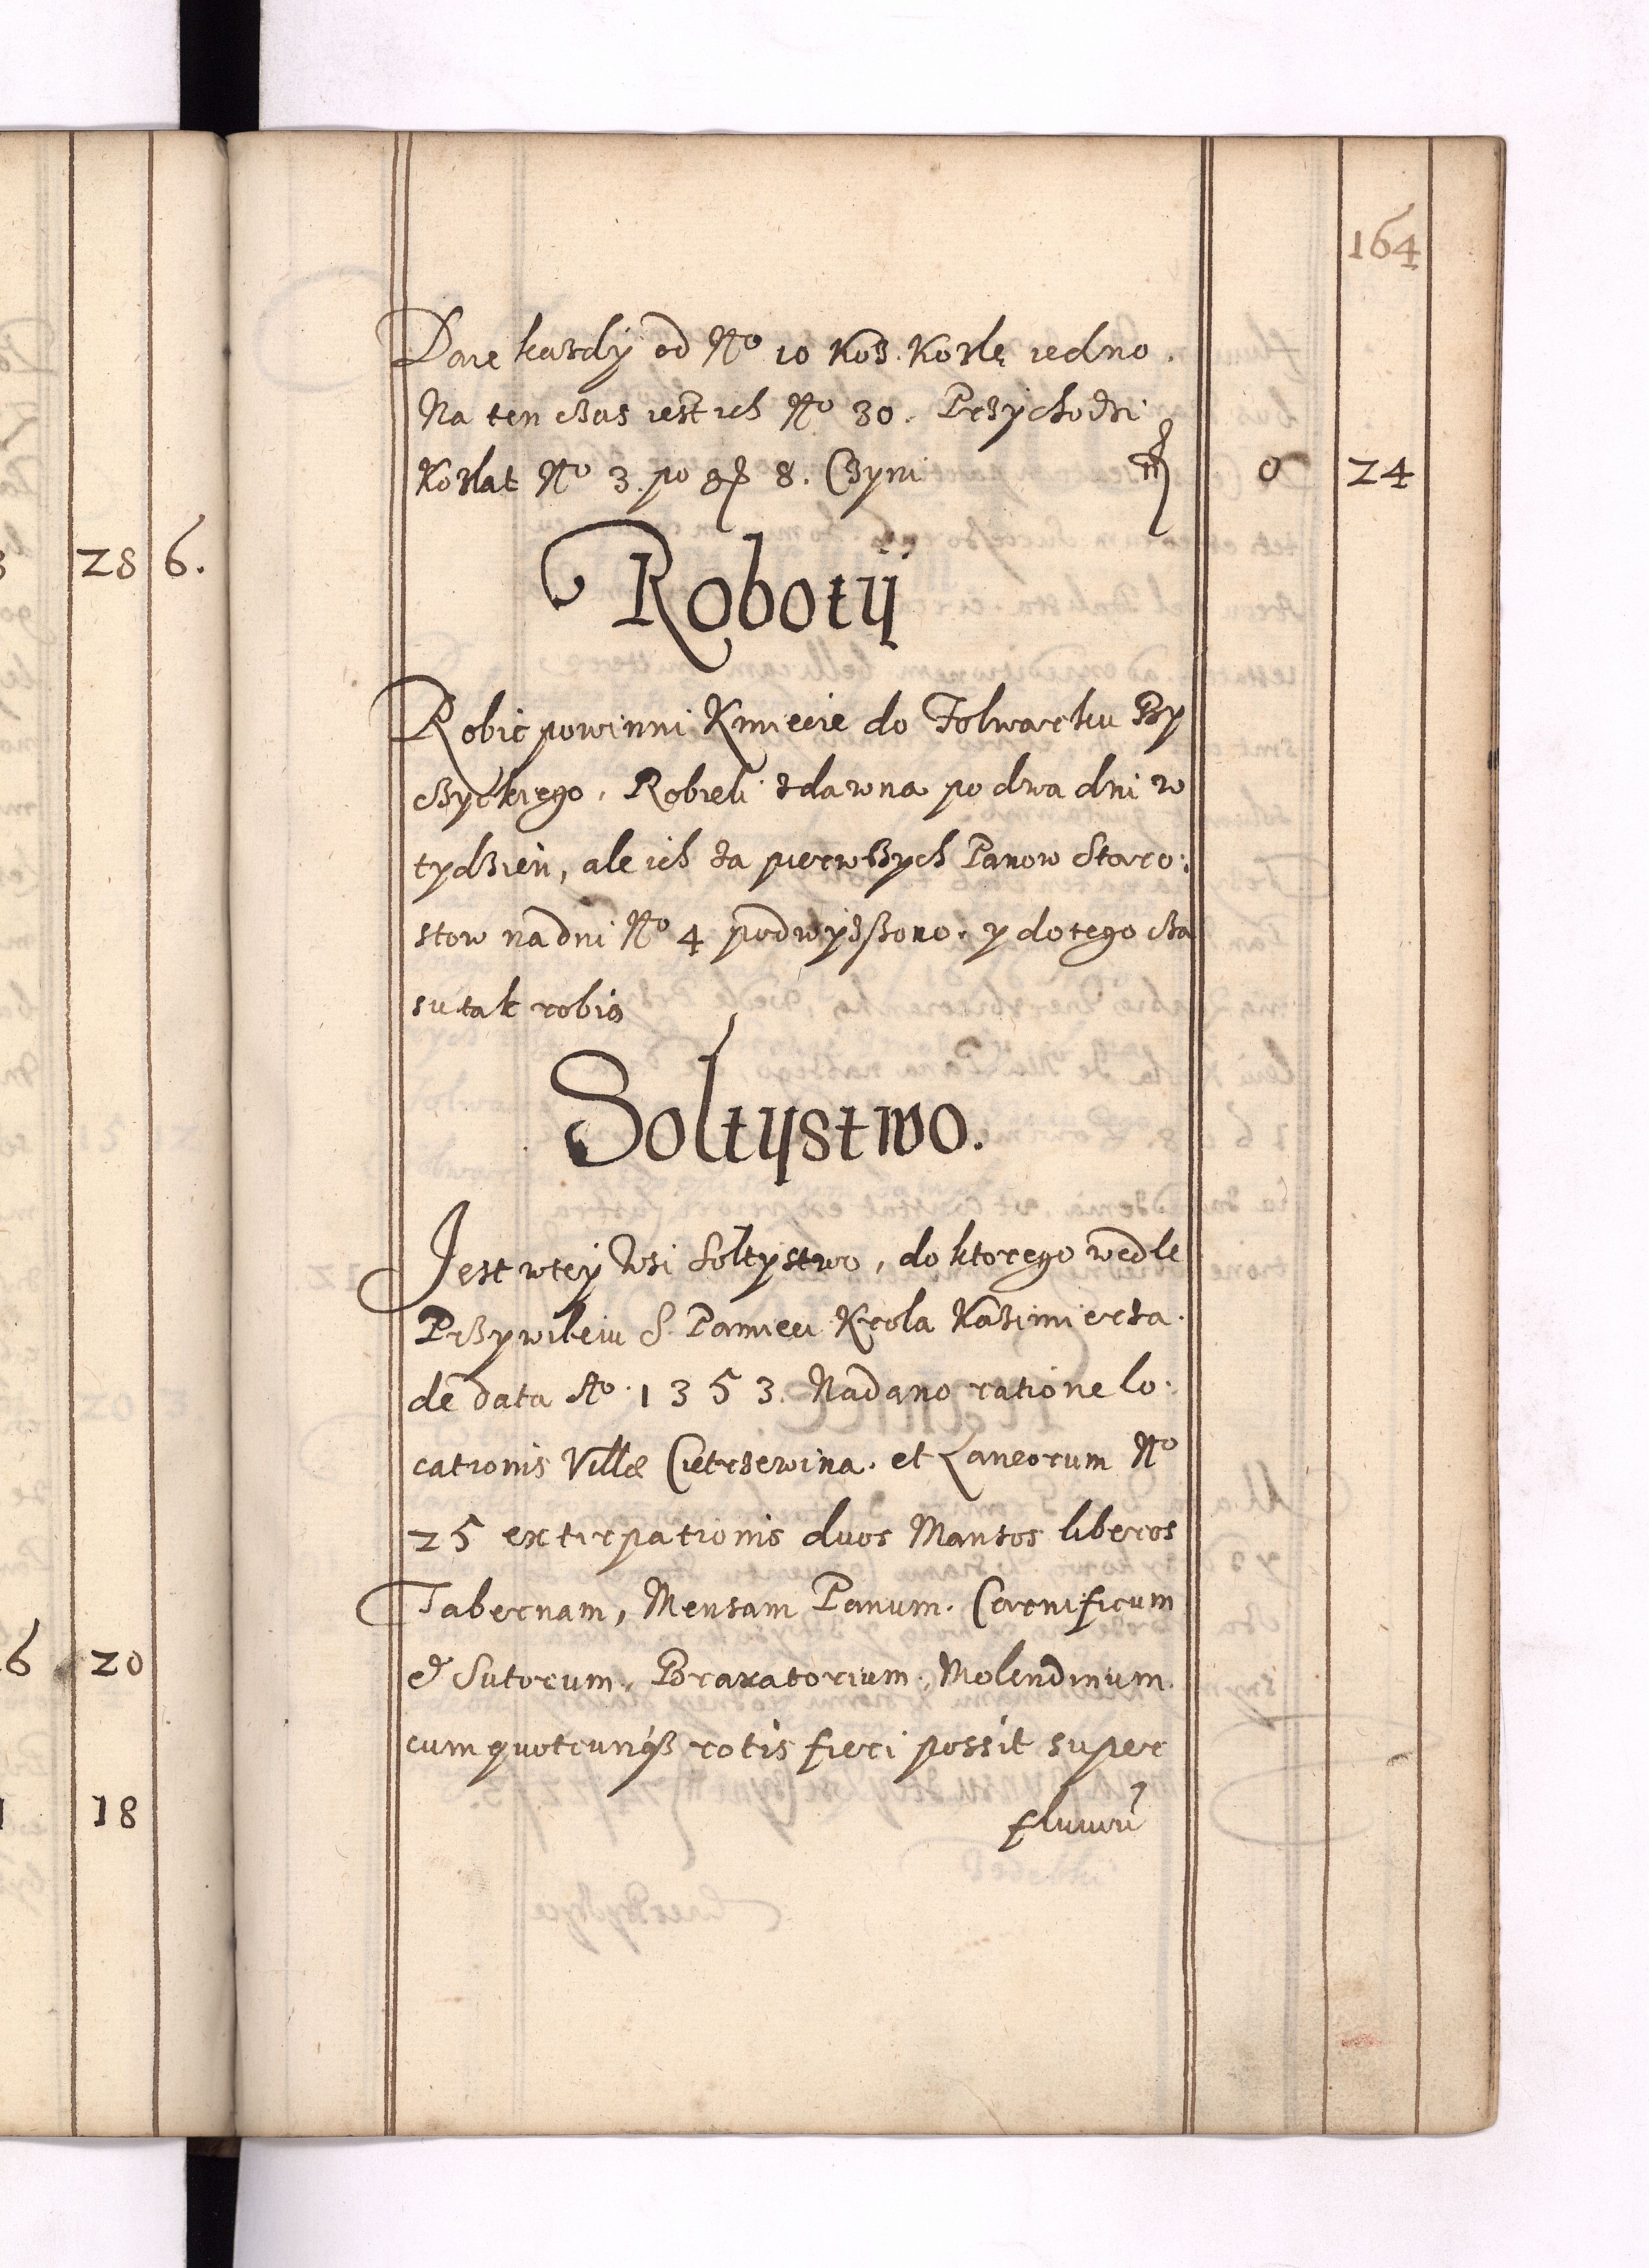 164
Daie kazdÿ od No 10 Koz. Kozlę iedno.
Na ten czas iest ich No 30. Przychodzi
Kozlat No 3. po gr 8. Czyni 0 24
Robotÿ
Robic powinni Kmiecie do Folwarku By
czyckiego, Robieli zdawna po dwa dni w
tydzień, ale ich za pierwszych Panow Staro:
stow na dni No 4 podwyzszono. y do tego cza
su tak robią
Soltÿstwo.
Jest w teÿ Wsi Soltystwo, do ktorego wedle
Przywileiu S. Pamieci Krola Kazimierza.
de data Ao. 1353. Nadano ratione lo:
cationis Villæ Cietrzewina. et Laneorum No
25 extirpationis duos Mansos liberos
Tabernam, Mensam Panum. Carnificum
& Sutorum, Braxatorium, Molendinum.
cum quotcunq3 rotis fieri possit super
fluviū
28 6.
6 20
18